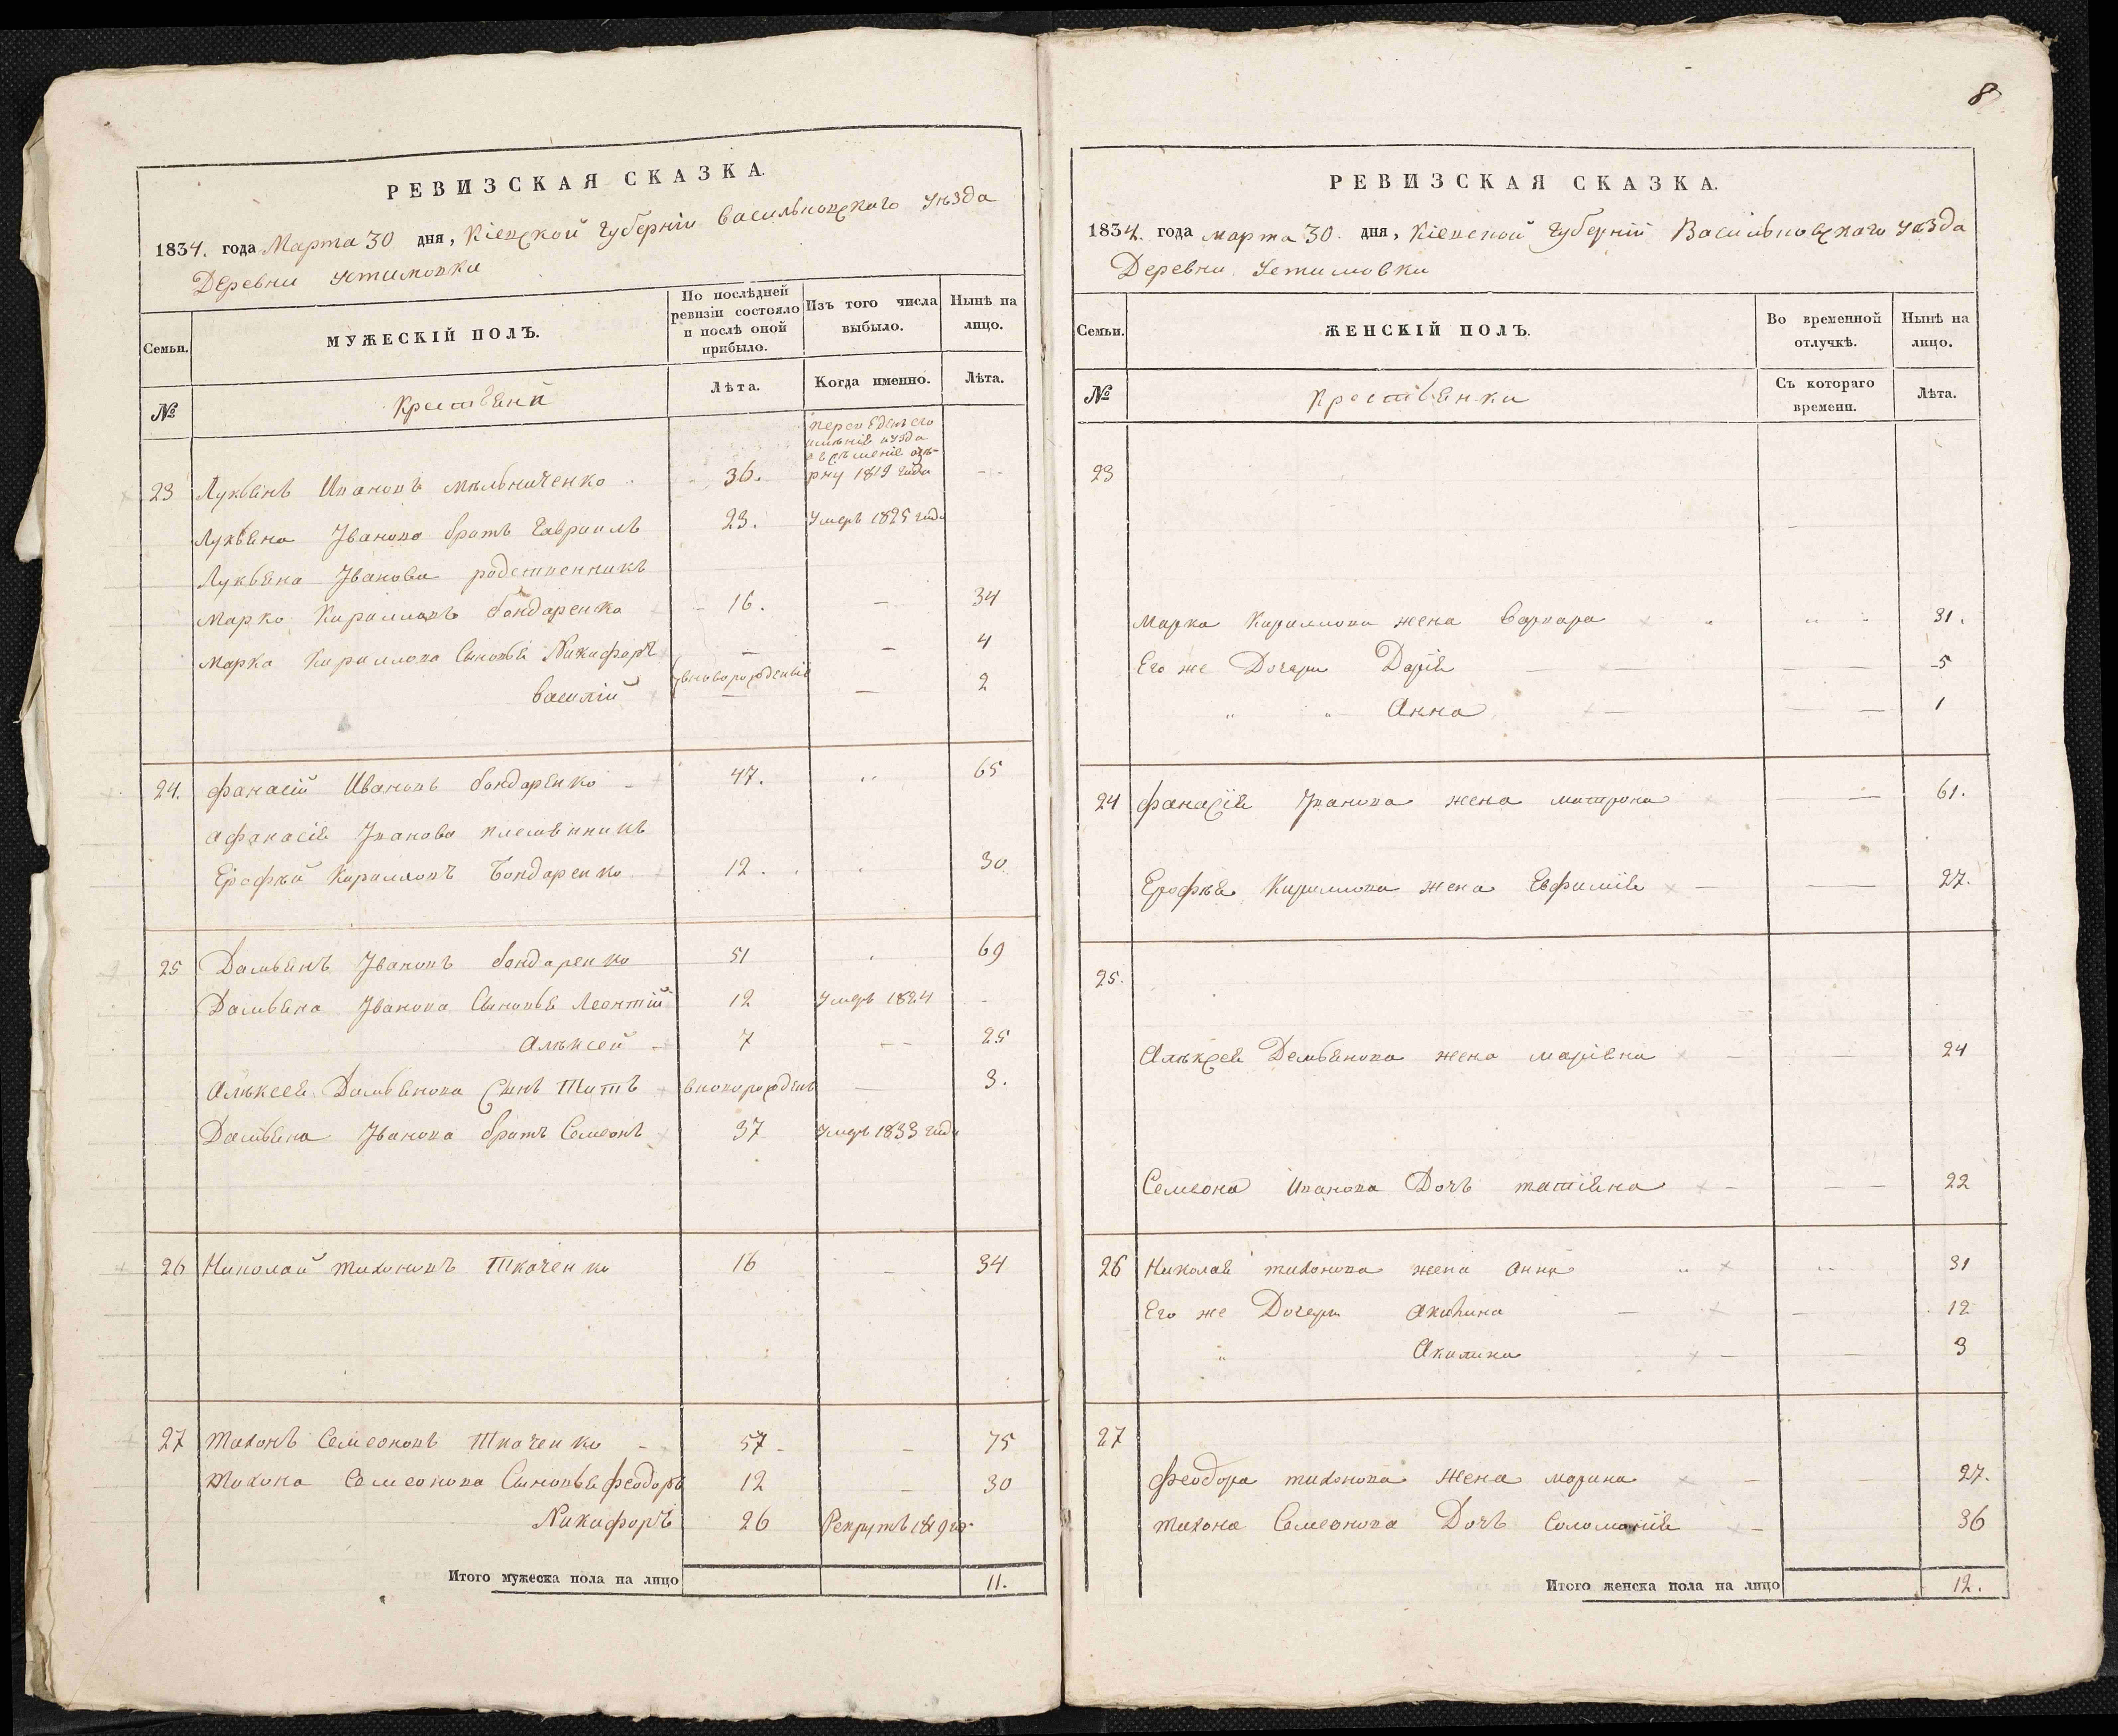 РЕВИЗСКАЯ СКАЗКА.
1834. года Марта 30 дня, Кіевской Губерніи Васильковскаго Уѣзда
Деревни Устимовки
Семьи.
МУЖЕСКІЙ ПОЛЪ.
По послѣдней ревизіи состояло и послѣ оной прибыло.
Изъ того числа выбыло.
Нынѣ на лицо.
№
Крестьяне
Лѣта.
Когда именно.
Лѣта.
23 Лукьянъ Ивановъ Мѣльниченко 36. 1819 года
Лукьяна Иванова братъ Гавриилъ 23. Умеръ 1825 года
Лукьяна Иванова родственникъ
Марко Кирилловъ Бондаренко 16. — 34
Марка Кириллова Сыновья Никифоръ — — 4
Василій вноворожденніе — 2
24. Фанасій Ивановъ Бондаренко 47. 65
Афанасія Иванова племянникъ
Ерофѣй Кирилловъ Бондаренко 12. 30
25 Дамьянъ Ивановъ Бондаренко 51 69
Дамьяна Иванова Сыновья Леонтій 12 Умеръ 1824
Алѣксей 7 — 25
Алѣксея Дамьянова Сынъ Титъ вноворожденъ — 3.
Дамьяна Иванова братъ Семеонъ 37 Умеръ 1833 года
26 Николай Тихоновъ Ткаченко 16 — 34
27 Тихонъ Семеоновъ Ткаченко 57 — 75
Тихона Семеонова Сыновья Феодоръ 12 — 30
Никифоръ 26 Рекрутъ 1819
Итого мужеска пола на лицо 11.
8
РЕВИЗСКАЯ СКАЗКА.
1834. года Марта 30. дня, Кіевской Губерніи Васильковскаго Уѣзда
Деревни Устимовки
Семьи.
ЖЕНСКІЙ ПОЛЪ.
Во временной отлучкѣ.
Нынѣ на лицо.
№
Крестьянки
Съ котораго времени.
Лѣта.
23
Марка Кириллова жена Варвара 31.
Его же Дочери Дарія — 5
" " Анна — 1
24 Фанасія Иванова жена Матрона — 61.
Ерофѣя Кириллова жена Евфимія — 27.
25.
Алѣксея Демьянова жена Маріяна — 24
Семеона Иванова Дочь Татіяна — 22
26 Николая Тихонова жена Анна 31
Его же Дочери Акилина — 12
" Акилина — 3
27
Феодора Тихонова жена Марина — 27.
Тихона Семеонова Дочь Соломонія — 36
Итого женска пола на лицо 12.